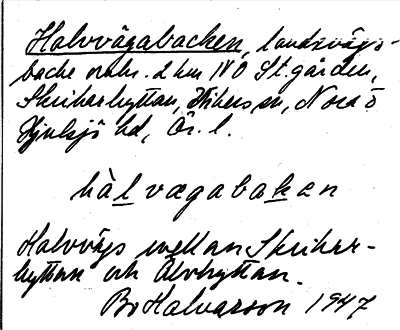 Halvvägabacken, landsvägs-
backe omkr. 2 km NO St. gården,
Skrikarhyttan, Vikers sn, Nora o
Hjulsjö hd, Ör. l.
hàlvægabakan
Halvvägs mellan Skrikar-
hyttan och Älvhyttan.
Bo Halvarson 1947